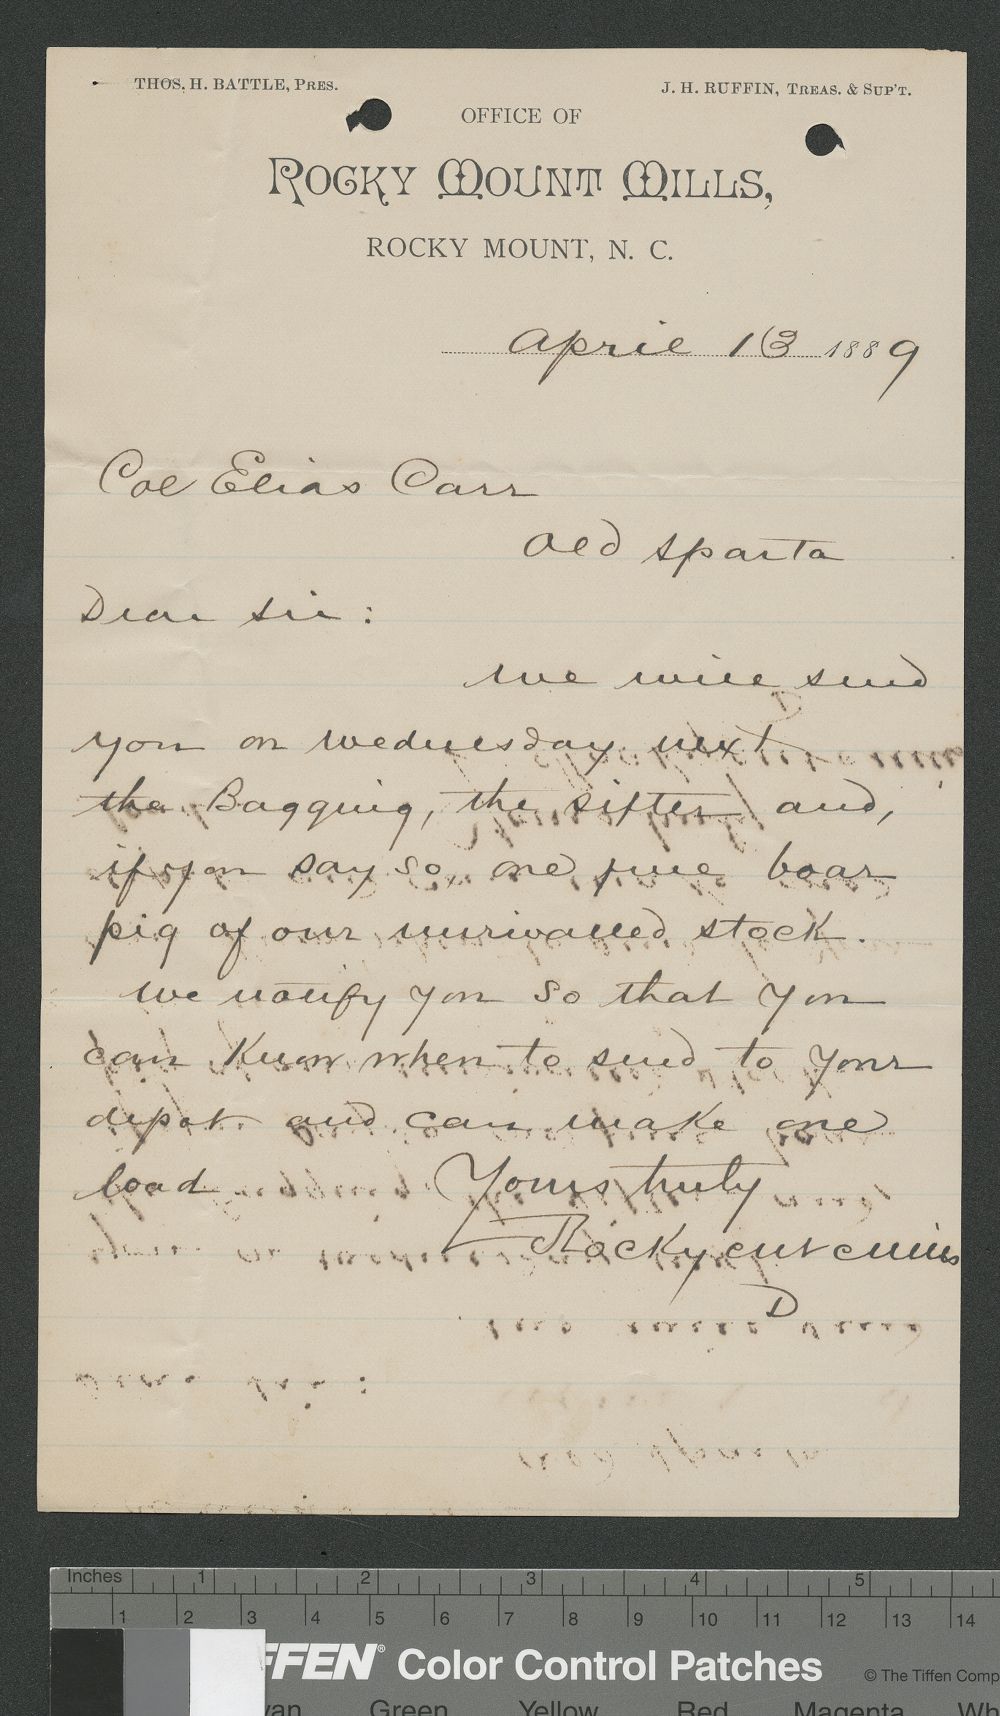 THOS. H. BATTLE, PRES.
J. H. RUFFIN, TREAS. & SUP'T.
OFFICE OF
ROCKY MOUNT MILLS,
ROCKY MOUNT, N. C.
April 13 1889
Col Elias Carr
Old Sparta
Dear Sir:
We will send
you on Wednesday next
the Bagging, the sifter and,
if you say so, one fine boar
pig of our unrivalled stock.
We notify you so that you
can know when to send to your
depot and can make one
load Yours truly
Rocky Mt Mills
D
Inches 1 2 3 4 5
1 2 3 4 5 6 7 8 9 10 11 12 13 14
FFEN® Color Control Patches
© The Tiffen Comp
yan Green Yellow Red Magenta Wh